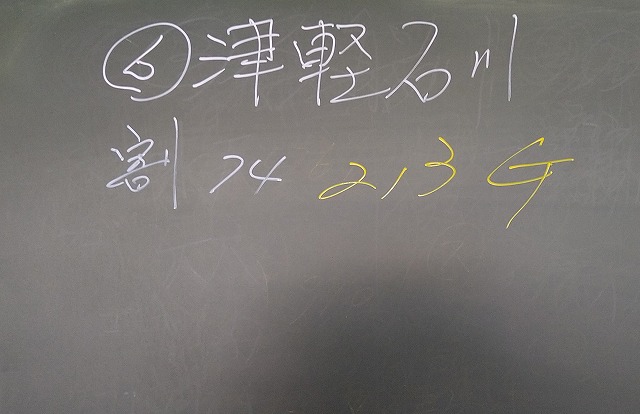 ⑥津軽石川
割 74 213 G